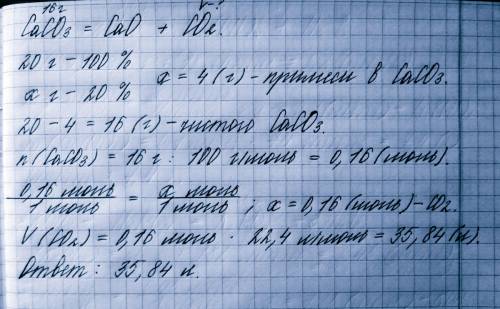 16 г V-?
CaCO₃ = CaO + CO₂.
20 г - 100 %
x г - 20 % x = 4 (г) - примеси в CaCO₃.
20 - 4 = 16 (г) - чистого CaCO₃.
n (CaCO₃) = 16 г : 100 г/моль = 0,16 (моль).
0,16 моль / 1 моль = x моль / 1 моль ; x = 0,16 (моль) - CO₂.
V (CO₂) = 0,16 моль · 22,4 л/моль = 35,84 (л).
Ответ: 35,84 л.